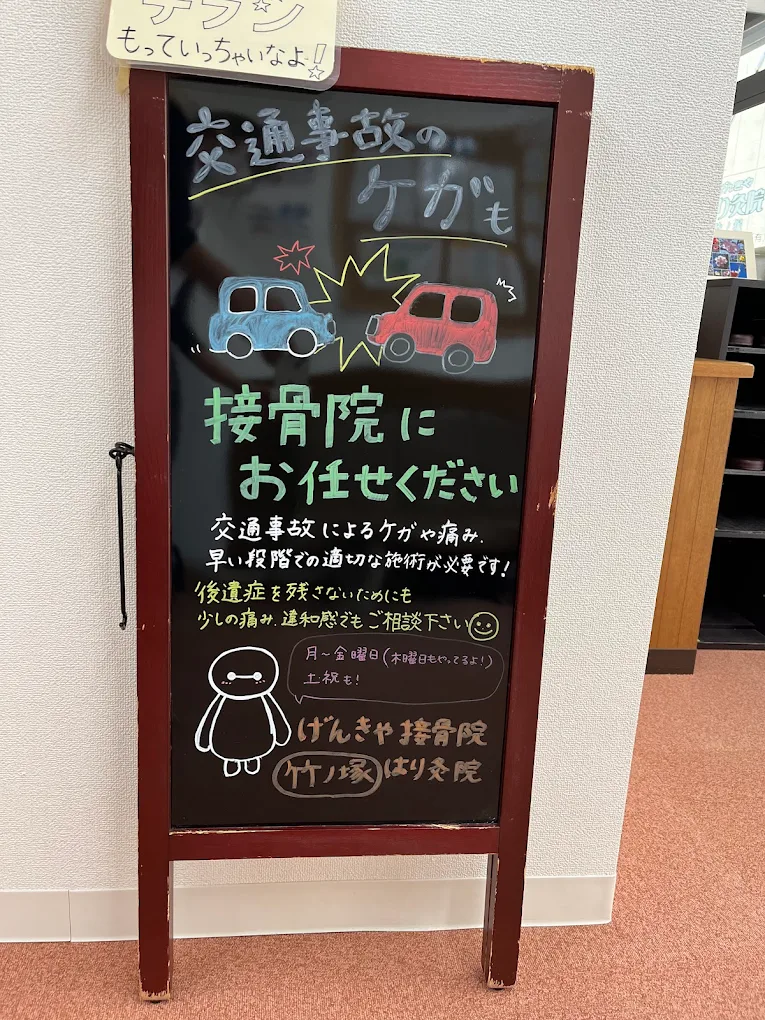 チラシ
もっていっちゃいなよ!
交通事故の
ケガも
接骨院に
お任せください
交通事故によるケガや痛み、
早い段階での適切な施術が必要です!
後遺症を残さないためにも
少しの痛み、違和感でもご相談下さい
月~金曜日(木曜日もやってるよ!)
土・祝も!
げんきや接骨院
竹ノ塚 はり灸院
灸院